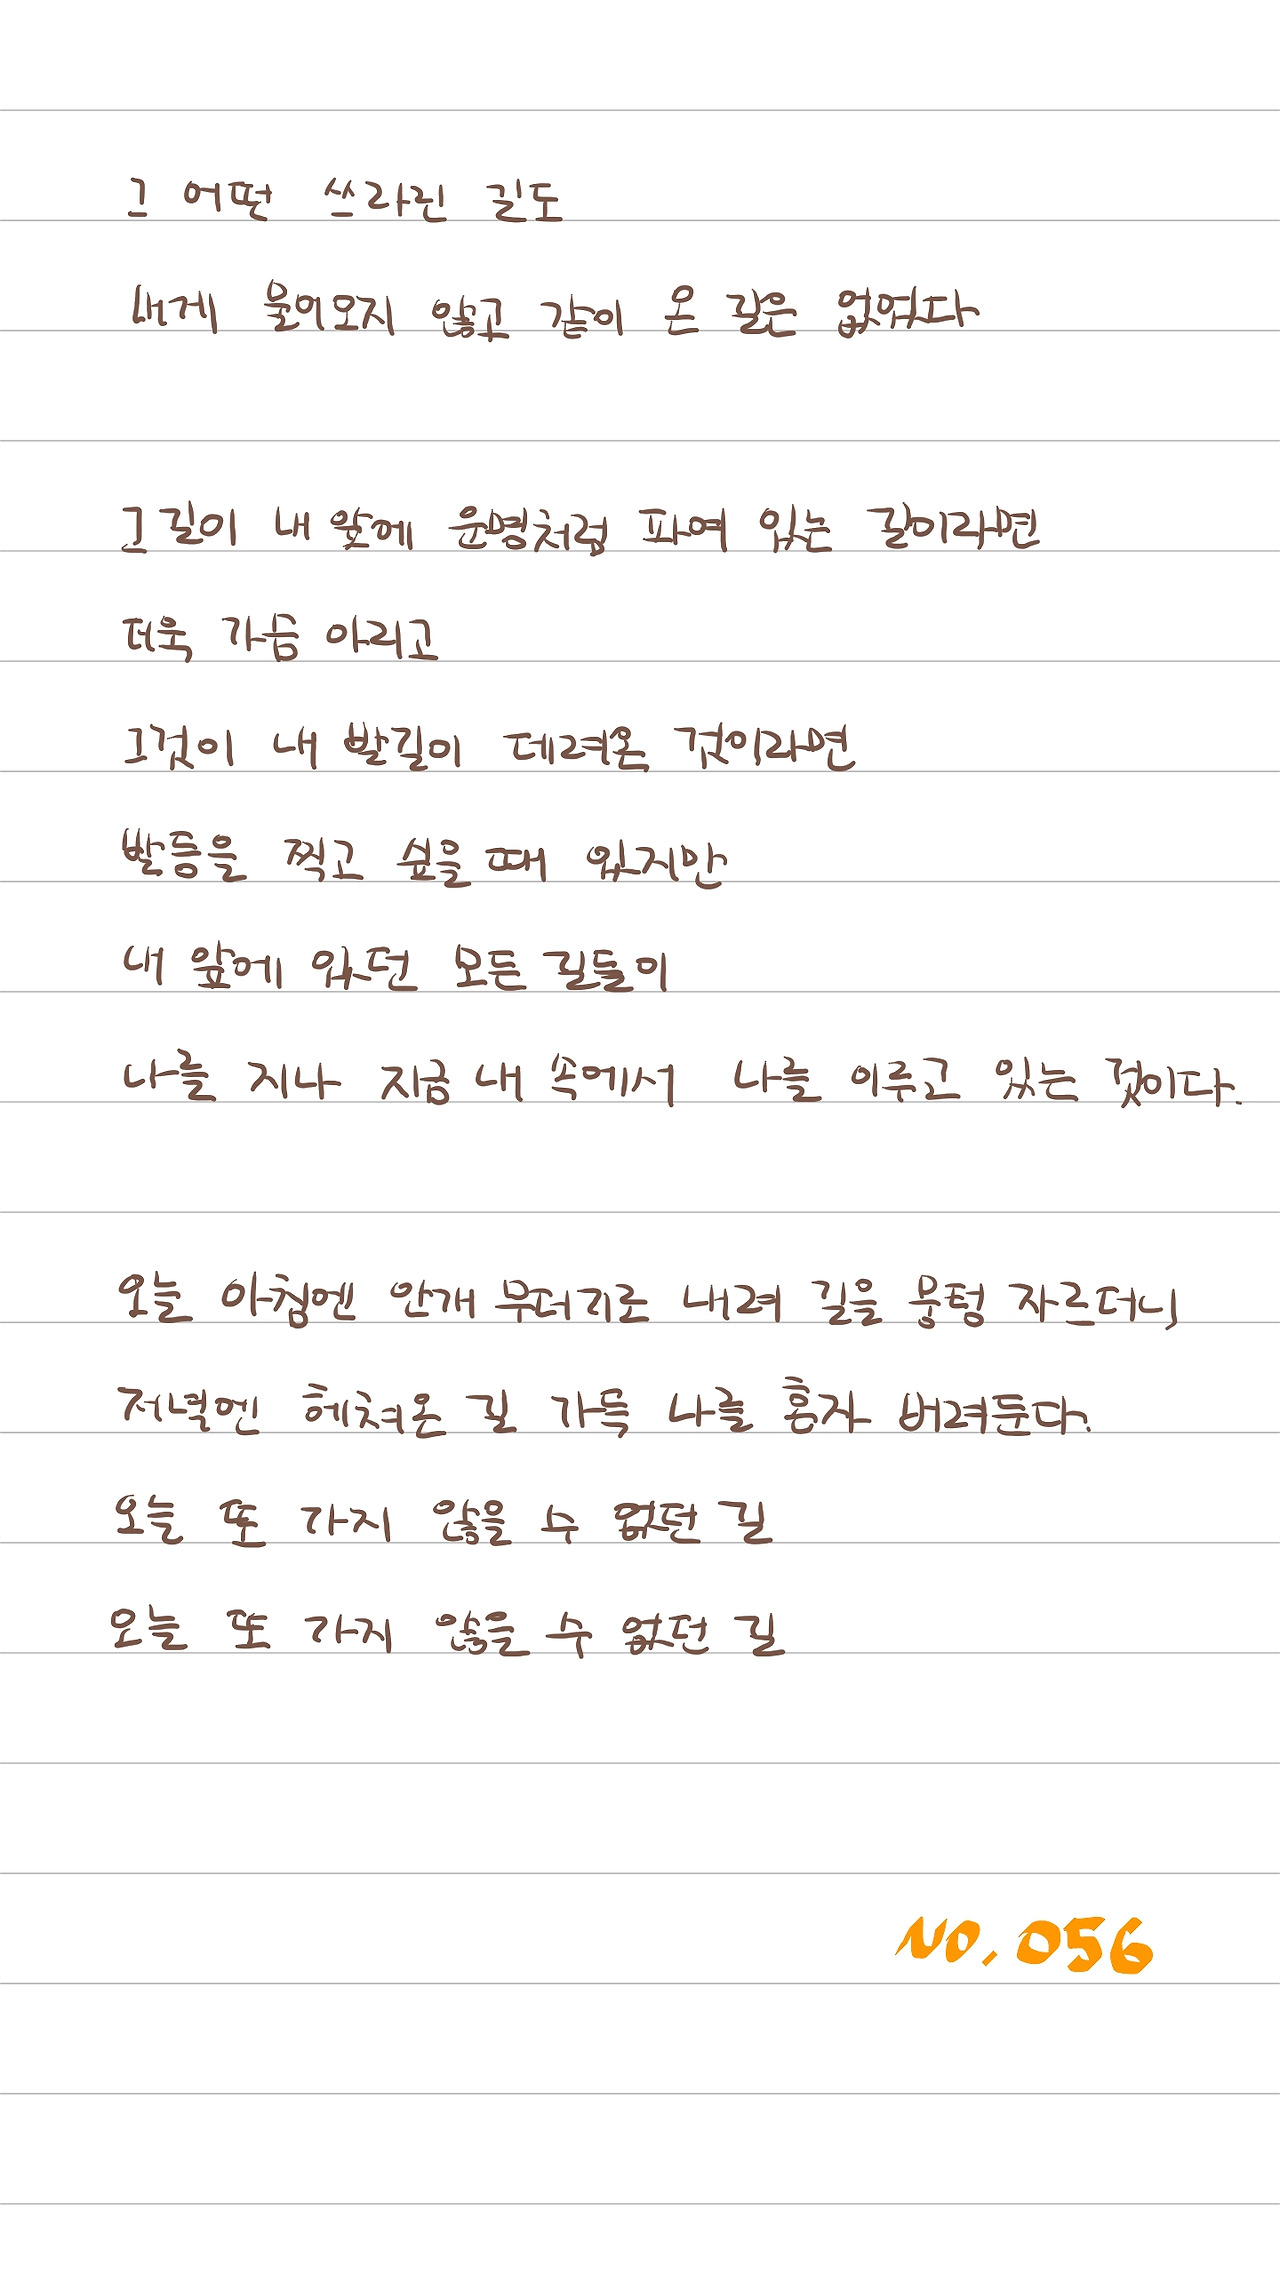 그 어떤 쓰라린 길도
내게 물어오지 않고 같이 온 길은 없었다
그 길이 내 앞에 운명처럼 파여 있는 길이라면
더욱 가슴 아리고
그것이 내 발길이 데려온 것이라면
발등을 찍고 싶을 때 있지만
내 앞에 있던 모든 길들이
나를 지나 지금 내 속에서 나를 이루고 있는 것이다.
오늘 아침엔 안개 무더기로 내려 길을 뭉텅 자르더니,
저녁엔 헤쳐온 길 가득 나를 혼자 버려둔다.
오늘 또 가지 않을 수 없던 길
오늘 또 가지 않을 수 없던 길
NO. 056